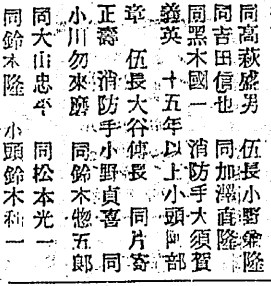 同高萩盛男 伍長小野兼隆
同吉田信也 同加澤直隆
同黑木國一 消防手大須賀
義英 十五年以上小頭阿部
章 伍長大谷傳長 同片寄
正壽 消防手小野貞喜 同
小川勿來磨 同鈴木惣五郎
同大山忠平 同松本光一
同鈴木隆 小頭鈴木利一